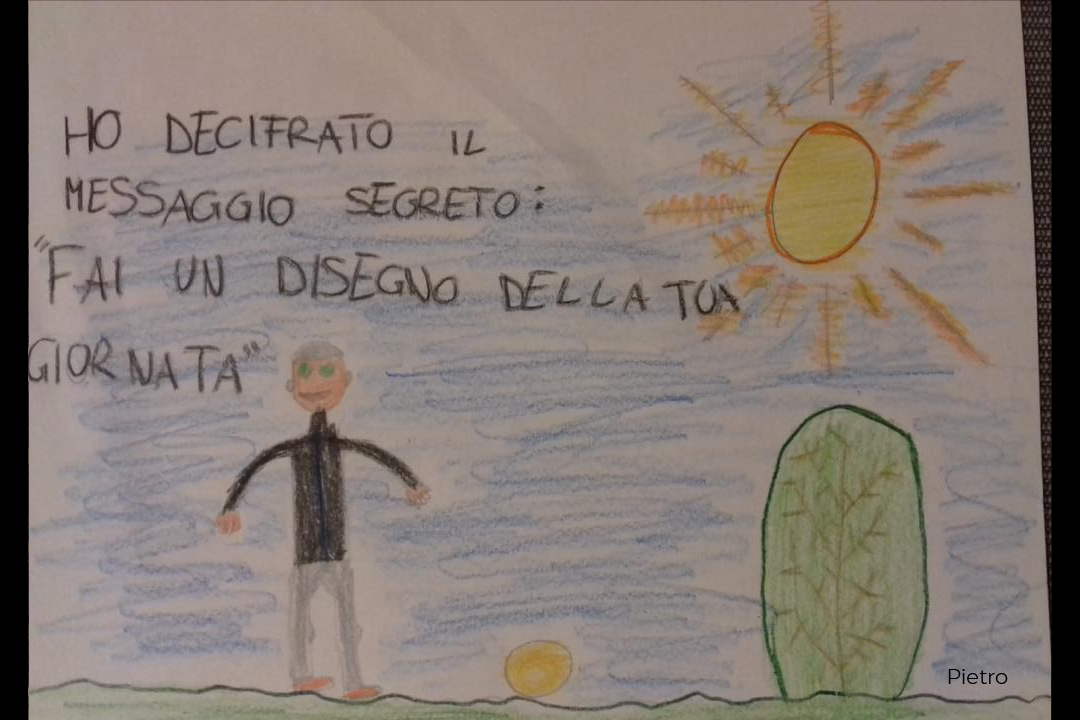 HO DECIFRATO IL
MESSAGGIO SEGRETO:
"FAI UN DISEGNO DELLA TUA
GIORNATA"
Pietro